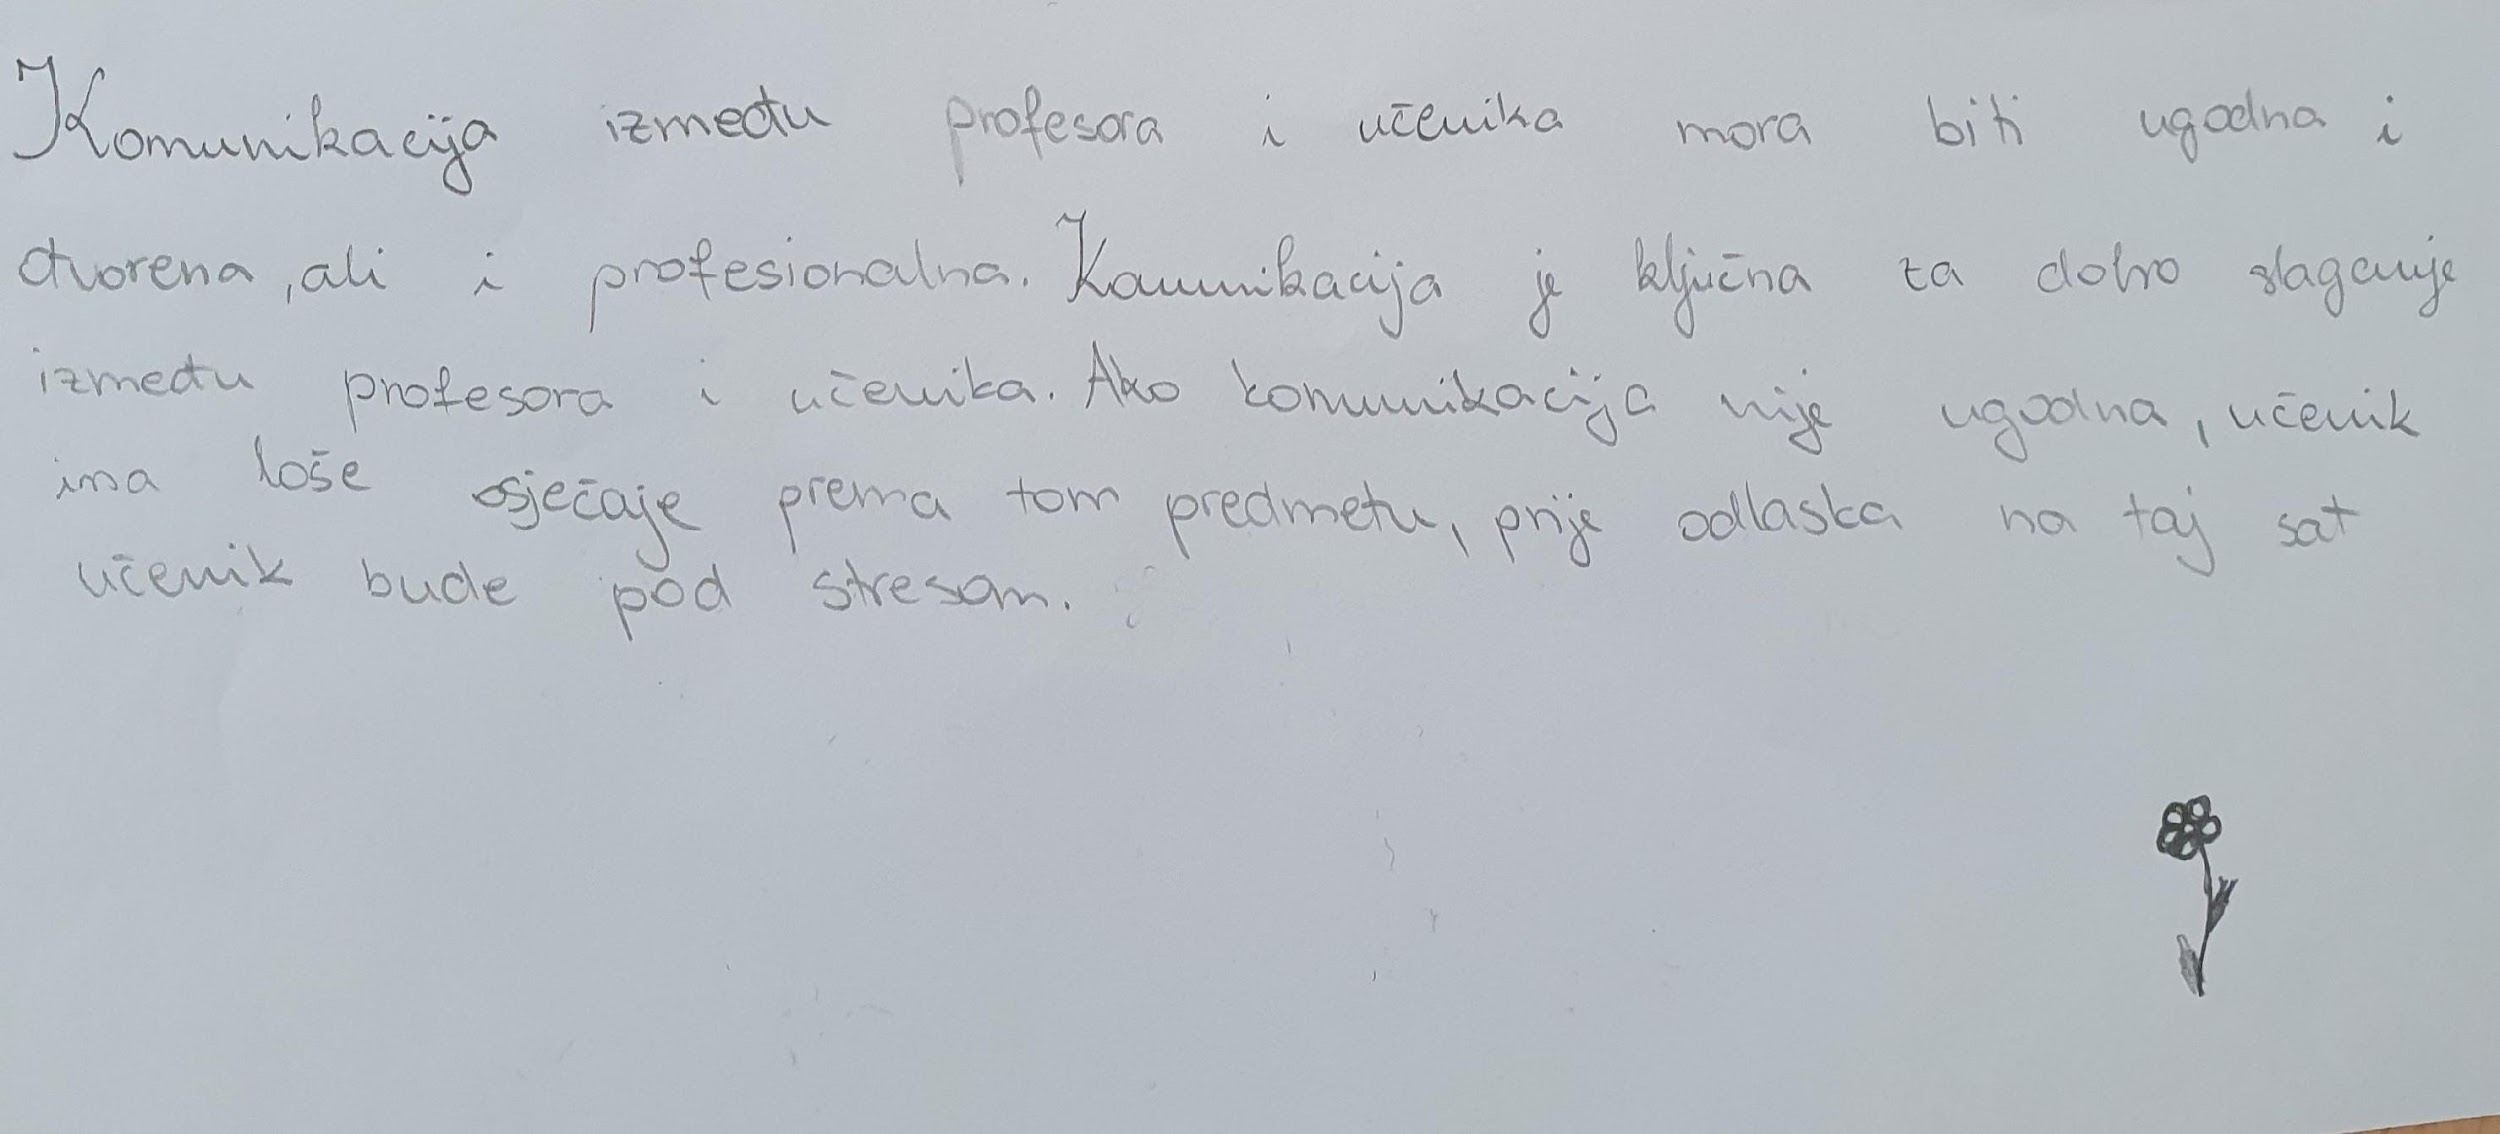 Komunikacija između profesora i učenika mora biti ugodna i
otvorena, ali i profesionalna. Komunikacija je ključna za dobro slaganje
između profesora i učenika. Ako komunikacija nije ugodna, učenik
ima loše osječaje prema tom predmetu, prije odlaska na taj sat
učenik bude pod stresom.